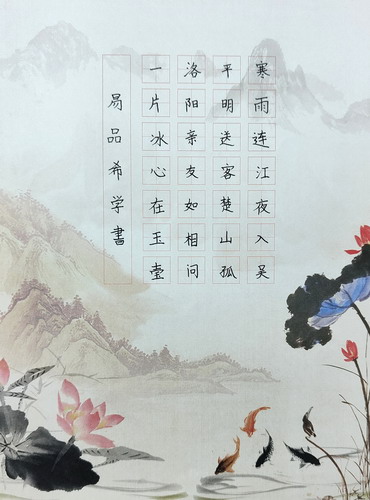 寒雨连江夜入吴
平明送客楚山孤
洛阳亲友如相问
一片冰心在玉壶
易品希学書